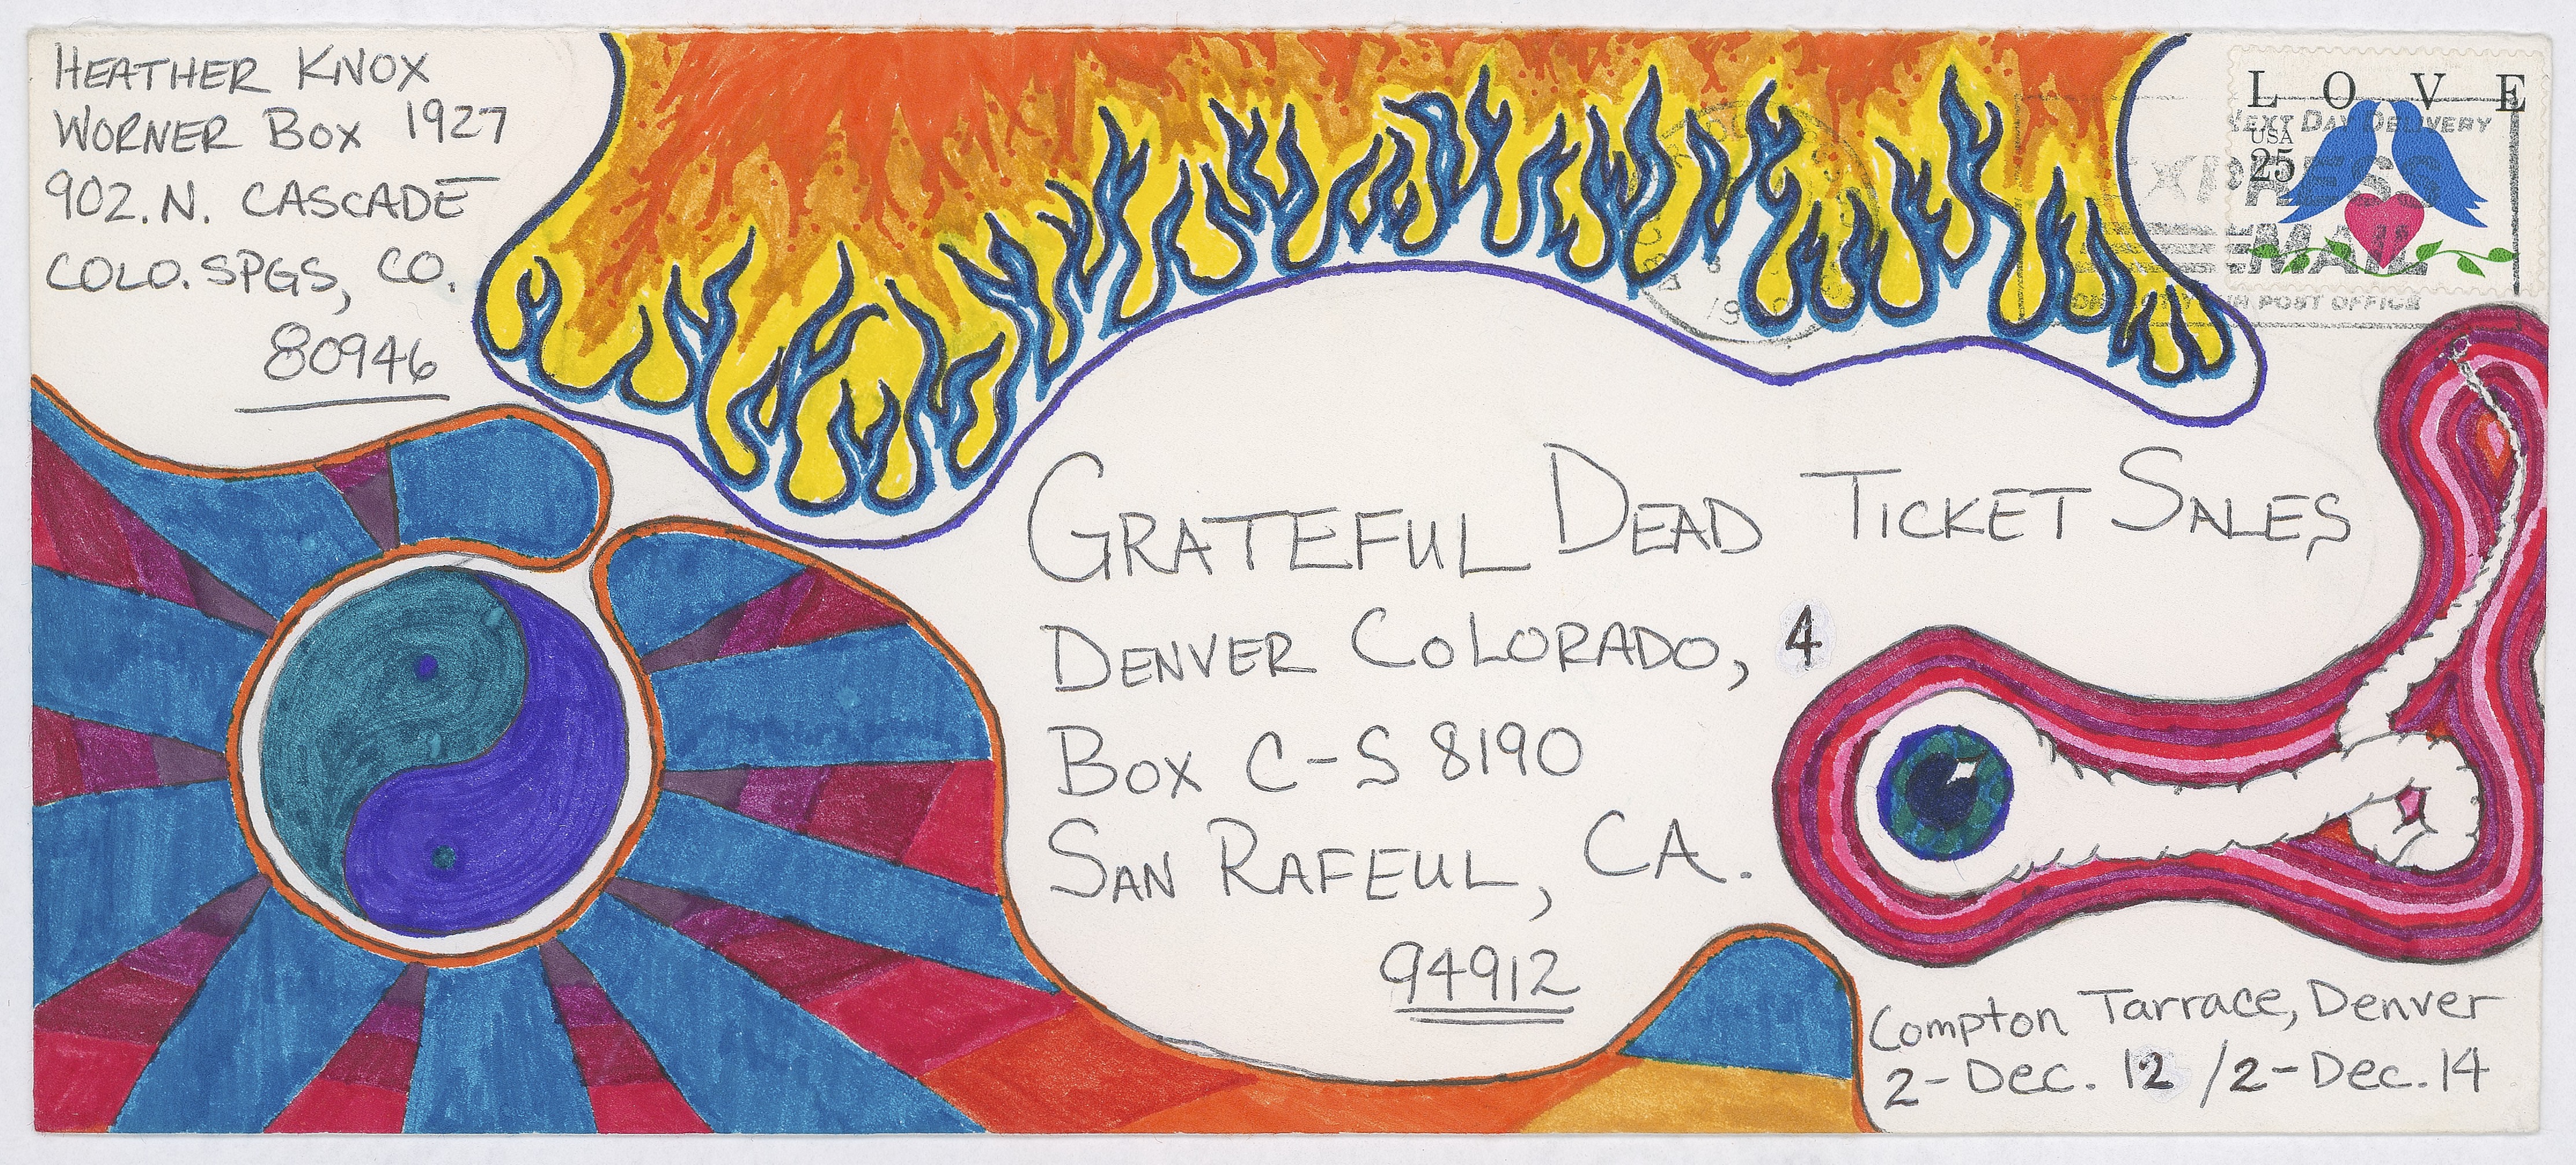 HEATHER KNOX
WORNER BOX 1927
902. N. CASCADE
COLO. SPGS, CO.
80946
LOVE
USA
25
NEXT DAY DELIVERY
EXPRESS
MAIL
IN POST OFFICE
GRATEFUL DEAD TICKET SALES
DENVER COLORADO, 4
BOX C-S 8190
SAN RAFEUL, CA.
94912
Compton Tarrace, Denver
2-Dec. 12 /2-Dec. 14